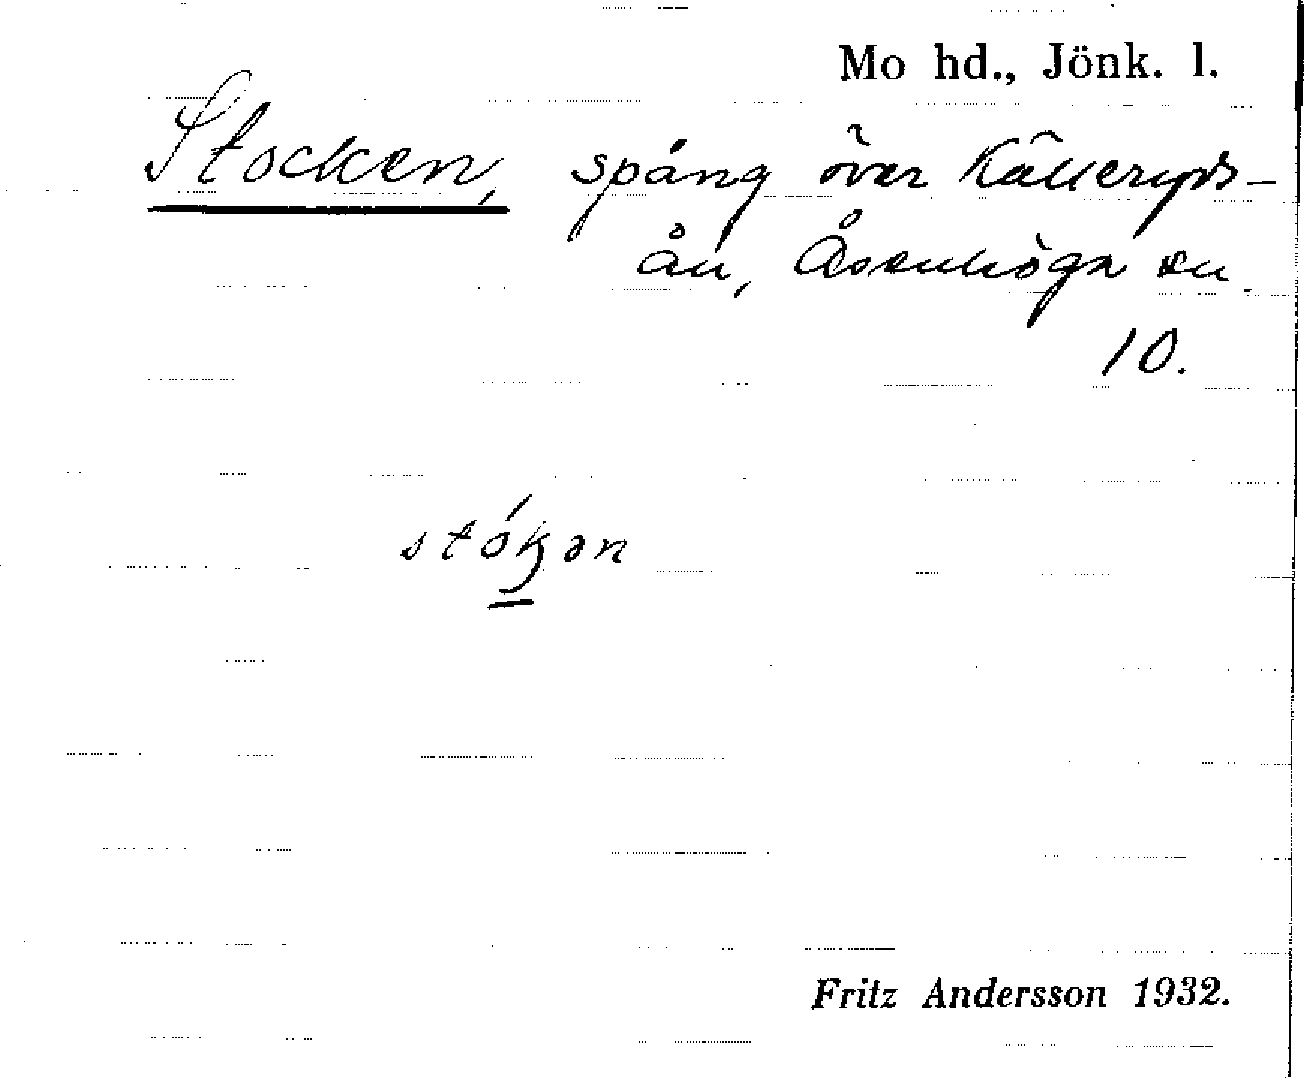 Mo hd., Jönk. l.
Stocken, spång över Källeryds-
ån, Åsenhöga sn
10.
stókən
Fritz Andersson 1932.